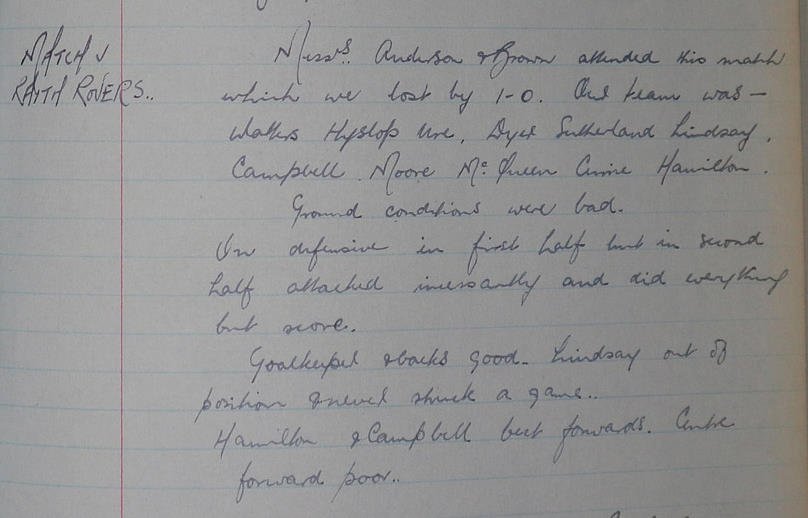 MATCH v
RAITH ROVERS..
Messrs. Anderson & Brown attended this match
which we lost by 1-0. Our team was —
Watters Hyslop Ure. Dyer Sutherland Lindsay.
Campbell Moore McQueen Cirrie Hamilton.
Ground conditions were bad.
On defensive in first half but in second
half attacked incessantly and did everything
but score.
Goalkeeper & backs good. Lindsay out of
position & never struck a game..
Hamilton & Campbell best forwards. Centre
forward poor..